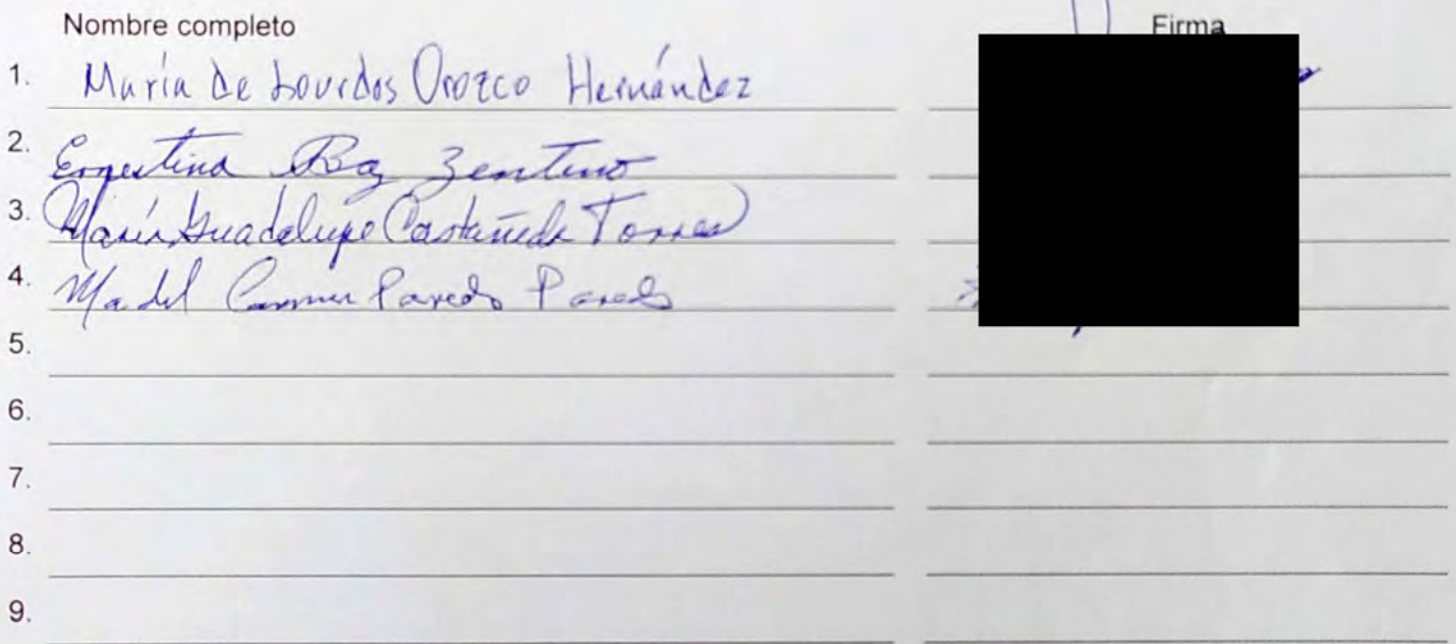 Nombre completo Firma
1. María de Lourdos Orozco Hernández
2. Ernestina Zentino
3. María Guadalupe Castañeda Torres
4. Ma del Carmen Paredes Paredes
5.
6.
7.
8.
9.